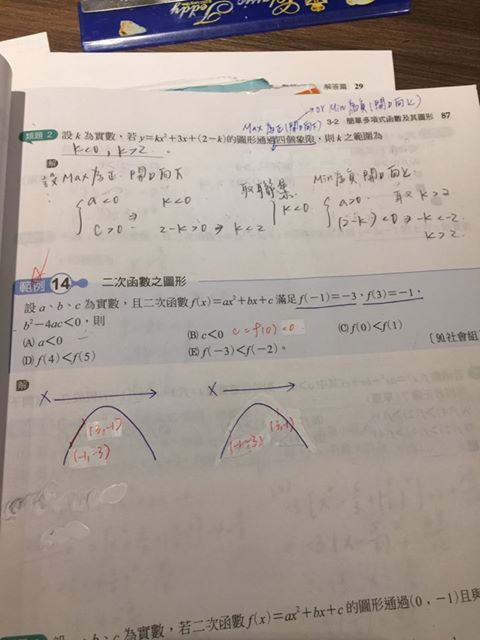 Teddy
解答篇 29
3-2 簡單多項式函數及其圖形 87
or Min為負(開口向上)
Max為正(開口向下)
類題 2 設 k 為實數,若 y=kx²+3x+(2-k)的圖形通過四個象限,則 k 之範圍為
k<0,k>2.
解
設Max為正.開口向下 取聯集 Min為負 開口向上
a<0 ⇒ k<0 k<0 a>0 取 k>2
c>0 ⇒ 2-k>0 ⇒ k<2 (2-k)<0 ⇒ -k<-2
k>2.
範例 14 二次函數之圖形
設 a、b、c 為實數,且二次函數 f(x)=ax²+bx+c 滿足 f(-1)=-3,f(3)=-1,
b²-4ac<0,則
(A) a<0 (B) c<0 c=f(0)<0 (C) f(0)<f(1)
(D) f(4)<f(5) (E) f(-3)<f(-2)。 〔90.社會組〕
解
X X
(3,-1) (3,-1)
(-1,-3) (-1,-3)
設 a、b、c 為實數,若二次函數 f(x)=ax²+bx+c 的圖形通過(0,-1)且與